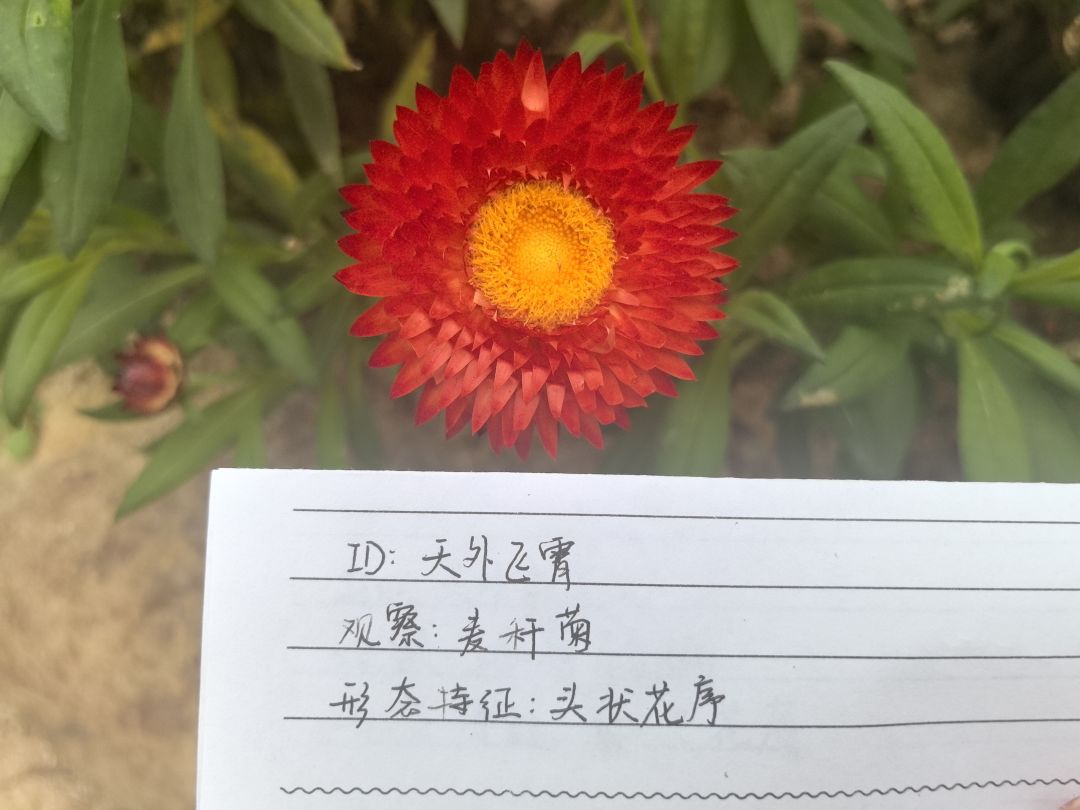 ID: 天外飞霄
观察: 麦秆菊
形态特征: 头状花序